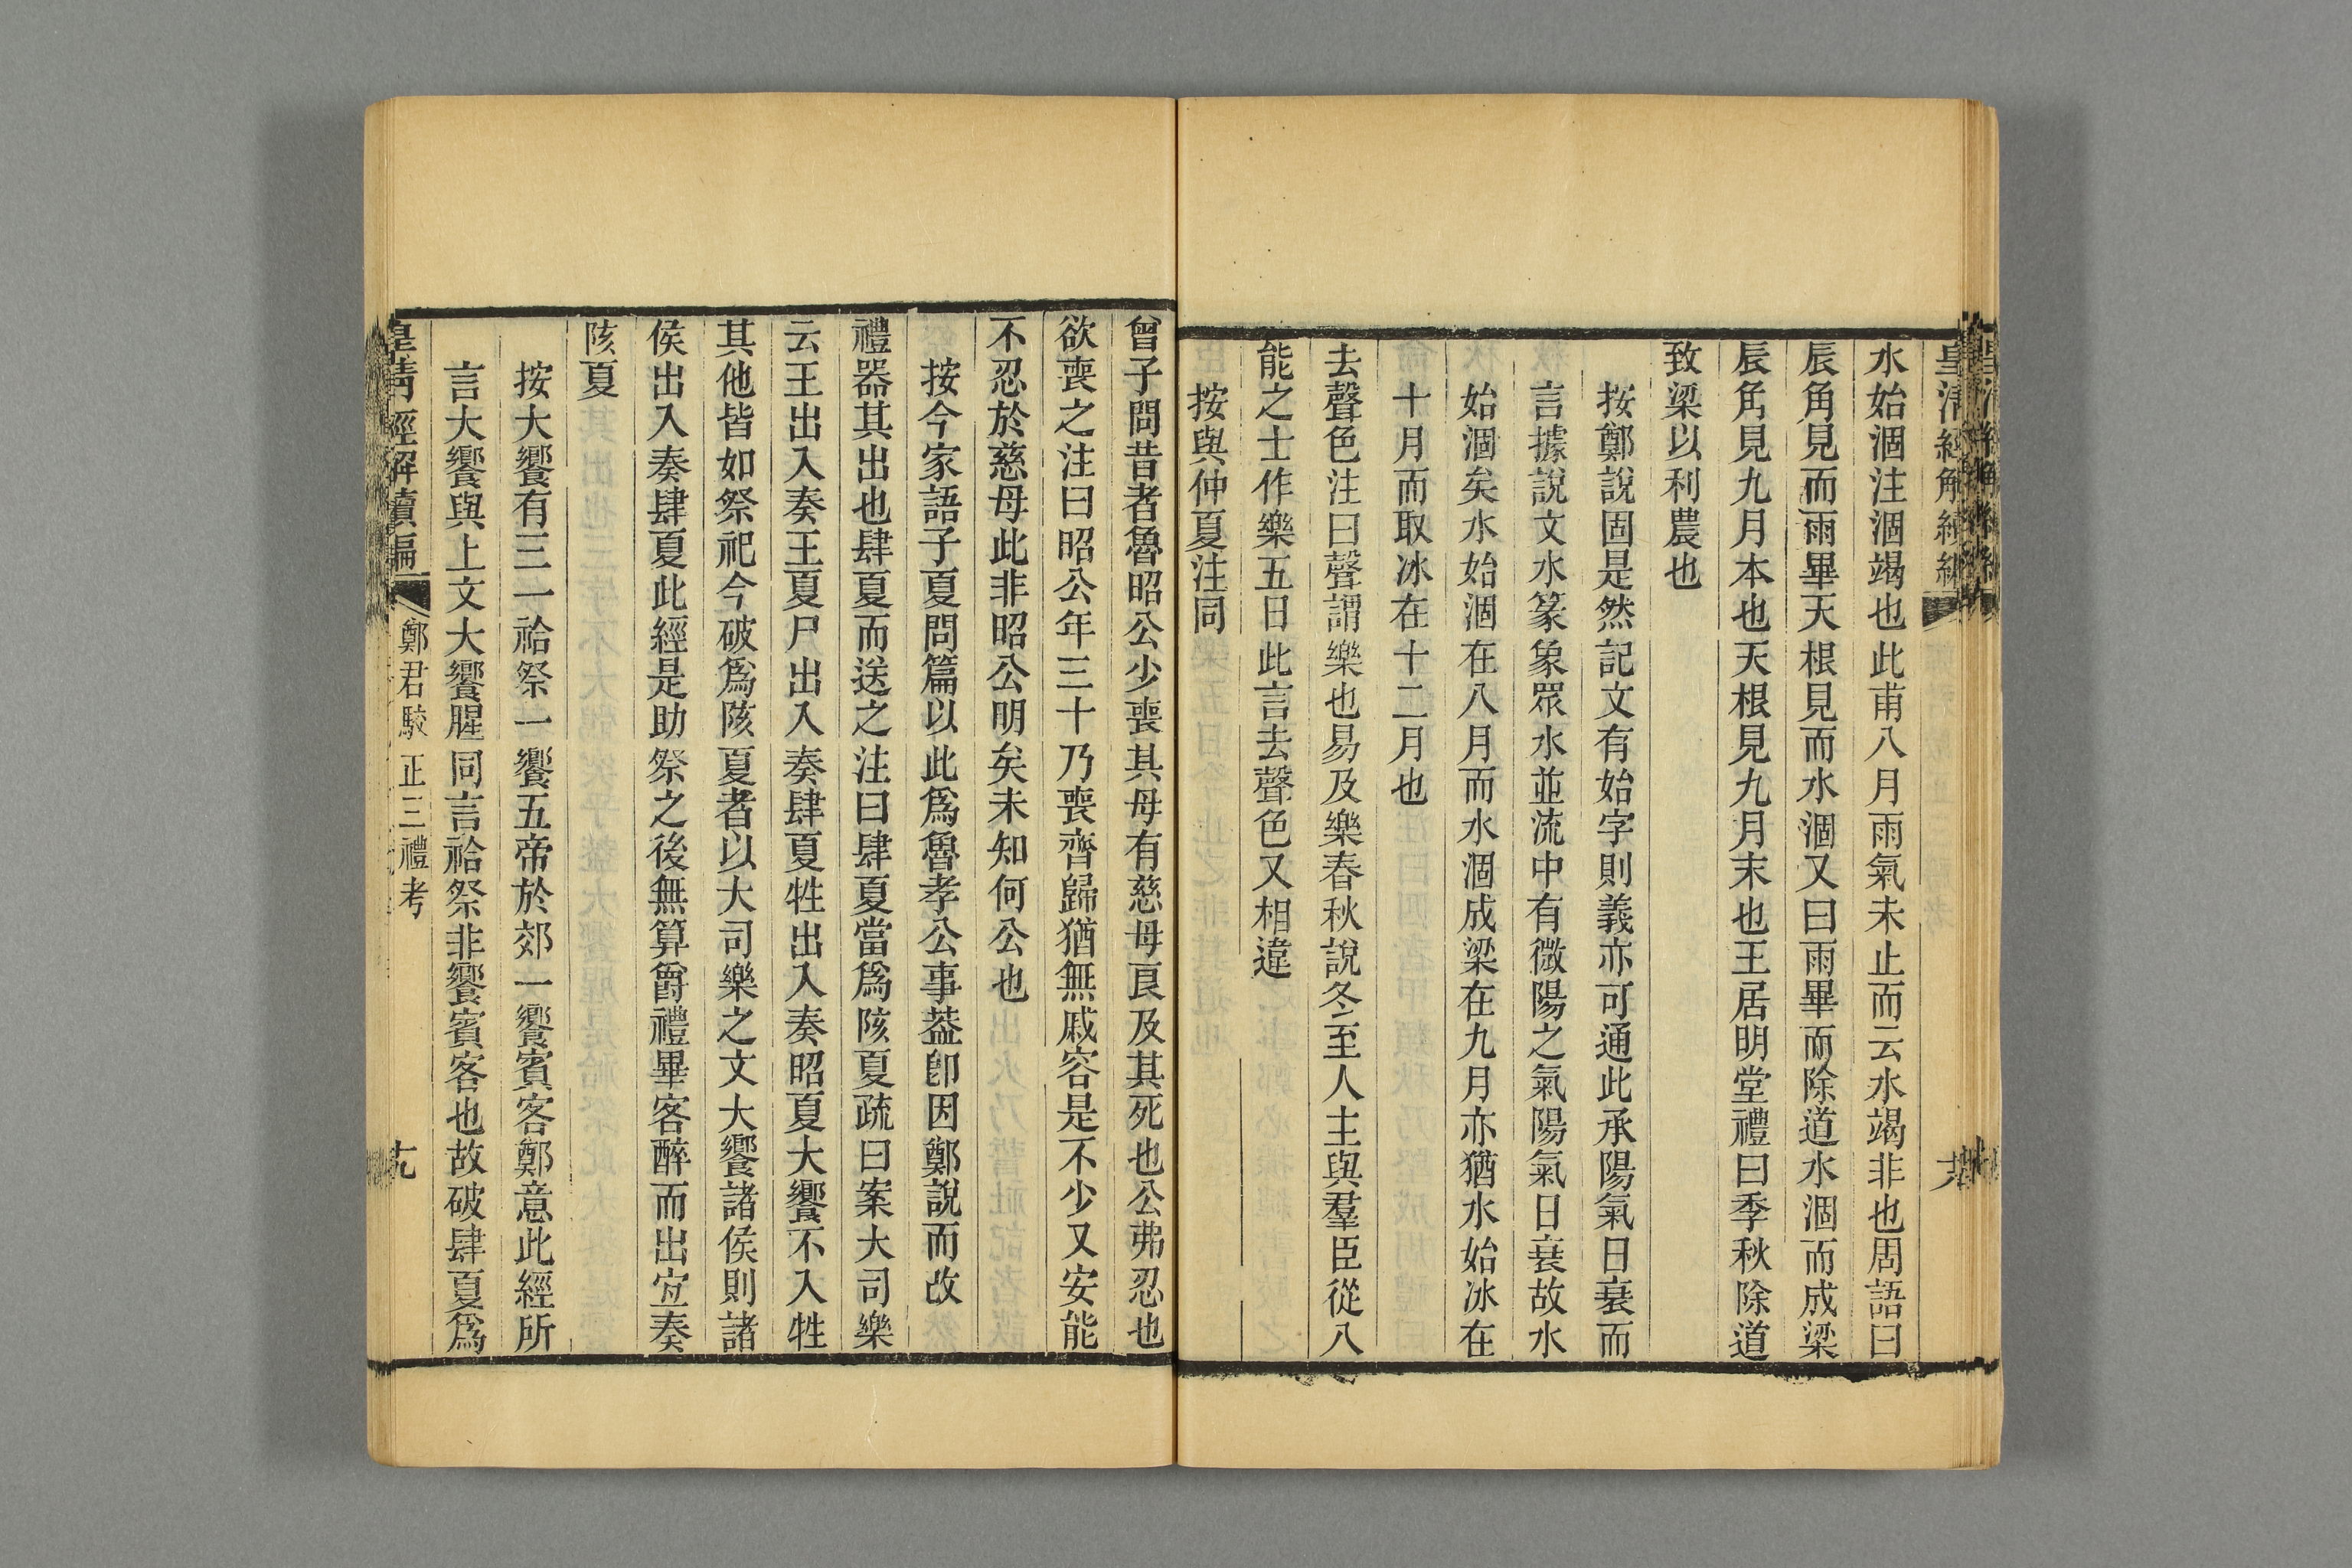 水始涸注涸竭也此甫八月雨氣未止而云水竭非也周語曰
辰角見而雨畢天根見而水涸又曰雨畢而除道水涸而成梁
辰角見九月本也天根見九月末也王居明堂禮曰季秋除道
致梁以利農也
按鄭說固是然記文有始字則義亦可通此承陽氣日衰而
言據說文水篆象眾水並流中有微陽之氣陽氣日衰故水
始涸矣水始涸在八月而水涸成梁在九月亦猶水始冰在
十月而取冰在十二月也
去聲色注曰聲謂樂也易及樂春秋說冬至人主與羣臣從八
能之士作樂五日此言去聲色又相違
按與仲夏注同
曾子問昔者魯昭公少喪其母有慈母良及其死也公弗忍也
欲喪之注曰昭公年三十乃喪齊歸猶無戚容是不少又安能
不忍於慈母此非昭公明矣未知何公也
按今家語子夏問篇以此爲魯孝公事葢卽因鄭說而改
禮器其出也肆夏而送之注曰肆夏當爲陔夏疏曰案大司樂
云王出入奏王夏尸出入奏肆夏牲出入奏昭夏大饗不入牲
其他皆如祭祀今破爲陔夏者以大司樂之文大饗諸侯則諸
侯出入奏肆夏此經是助祭之後無算爵禮畢客醉而出宜奏
陔夏
按大饗有三一祫祭一饗五帝於郊一饗賓客鄭意此經所
言大饗與上文大饗腥同言祫祭非饗賓客也故破肆夏爲
皇清經解續編 鄭君駮正三禮考 十九